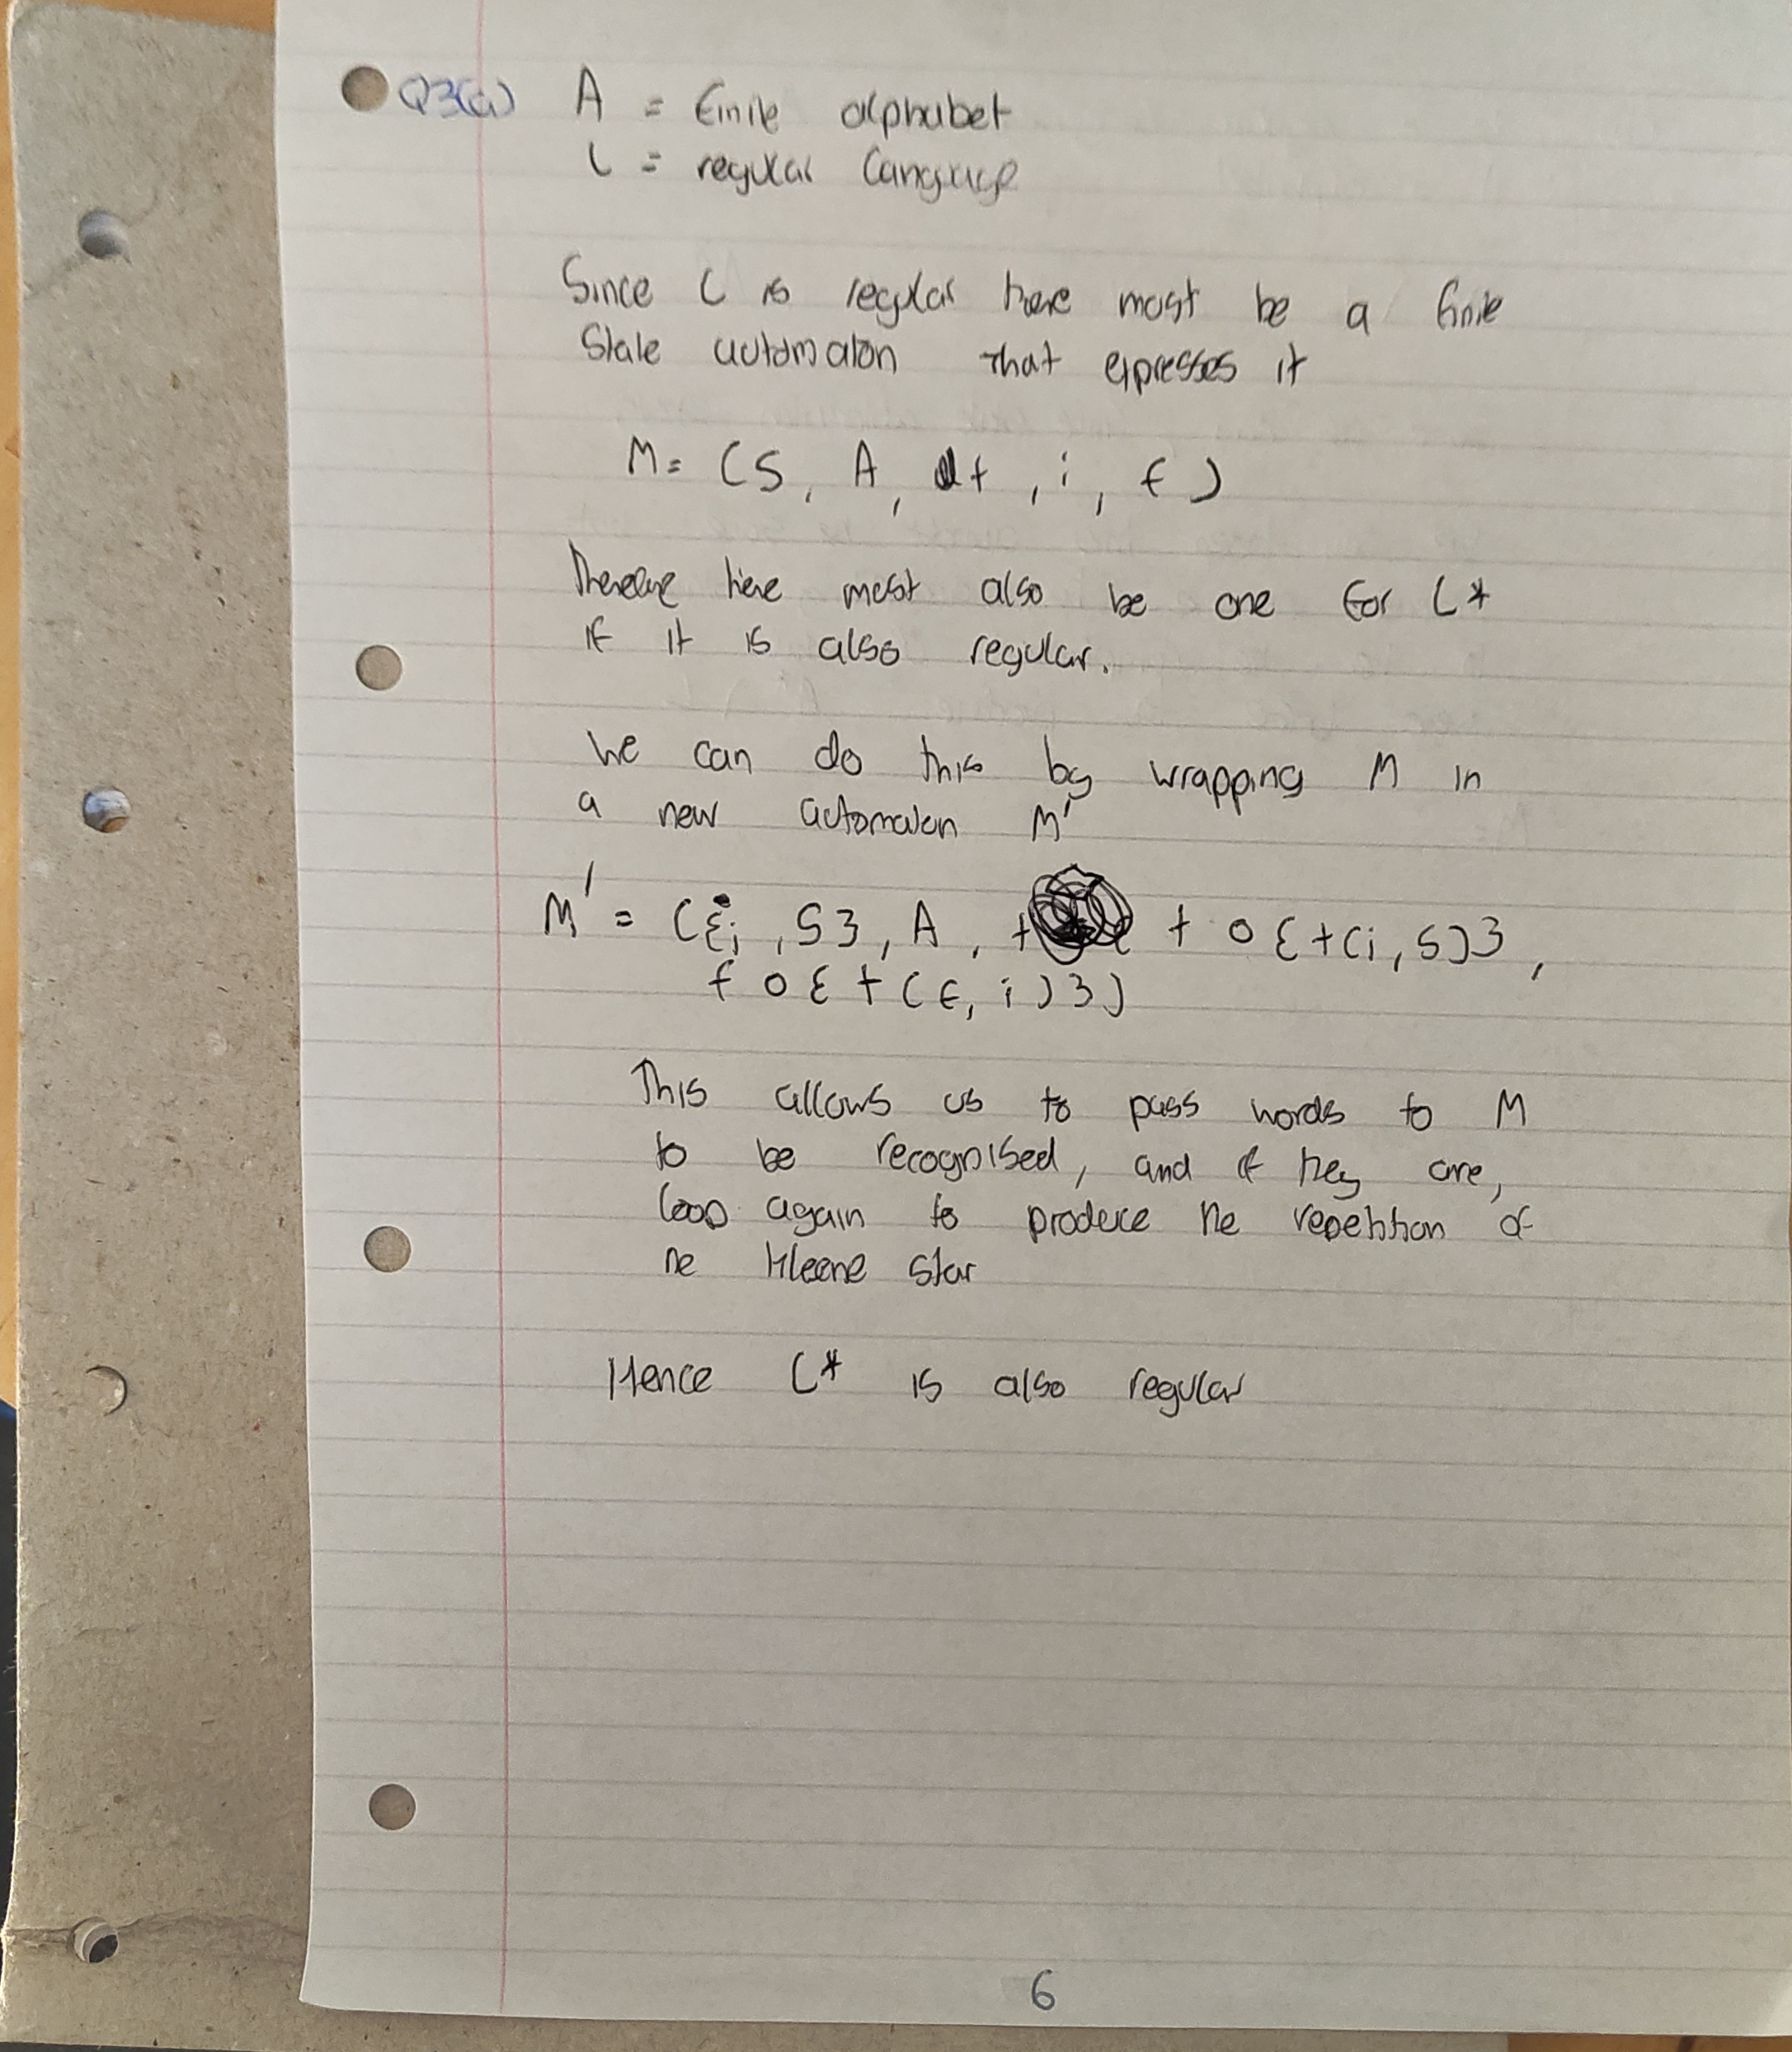 Q3(a) A = finite alphabet
L = regular language
Since L is regular there must be a finite
State automaton that expresses it
M = (S, A, t, i, f)
Therefore there must also be one for L*
if it is also regular.
We can do this by wrapping M in
a new automaton M'
M' = ({i, S}, A, t o {t(i, S)},
f o {t(f, i)})
This allows us to pass words to M
to be recognised, and if they are,
loop again to produce the repetition of
the Kleene star
Hence L* is also regular
6